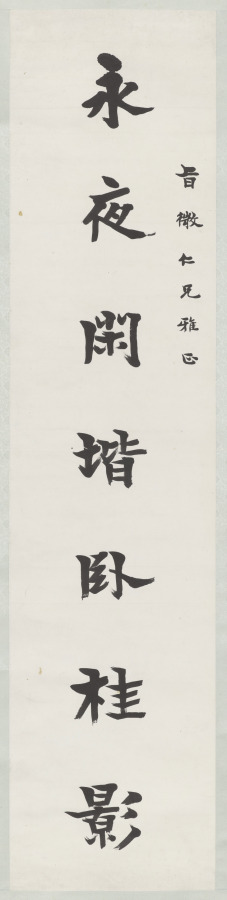 旨微仁兄雅正
永夜閑堦臥桂影